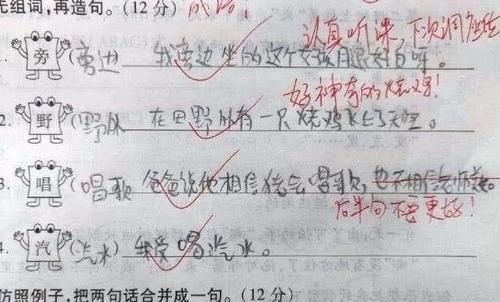 先组词,再造句。(12分)
认真听课,下次调座位
旁(旁边)我旁边坐的这个女孩
好神奇的烧鸡!
野(野外)在田野外有一只烧鸡飞上了天空。
唱(唱歌)爸爸说他相信猪会唱歌,也不相信
后半句不要更好!
汽(汽水)我爱喝汽水。
仿照例子,把两句话合并成一句。(12分)